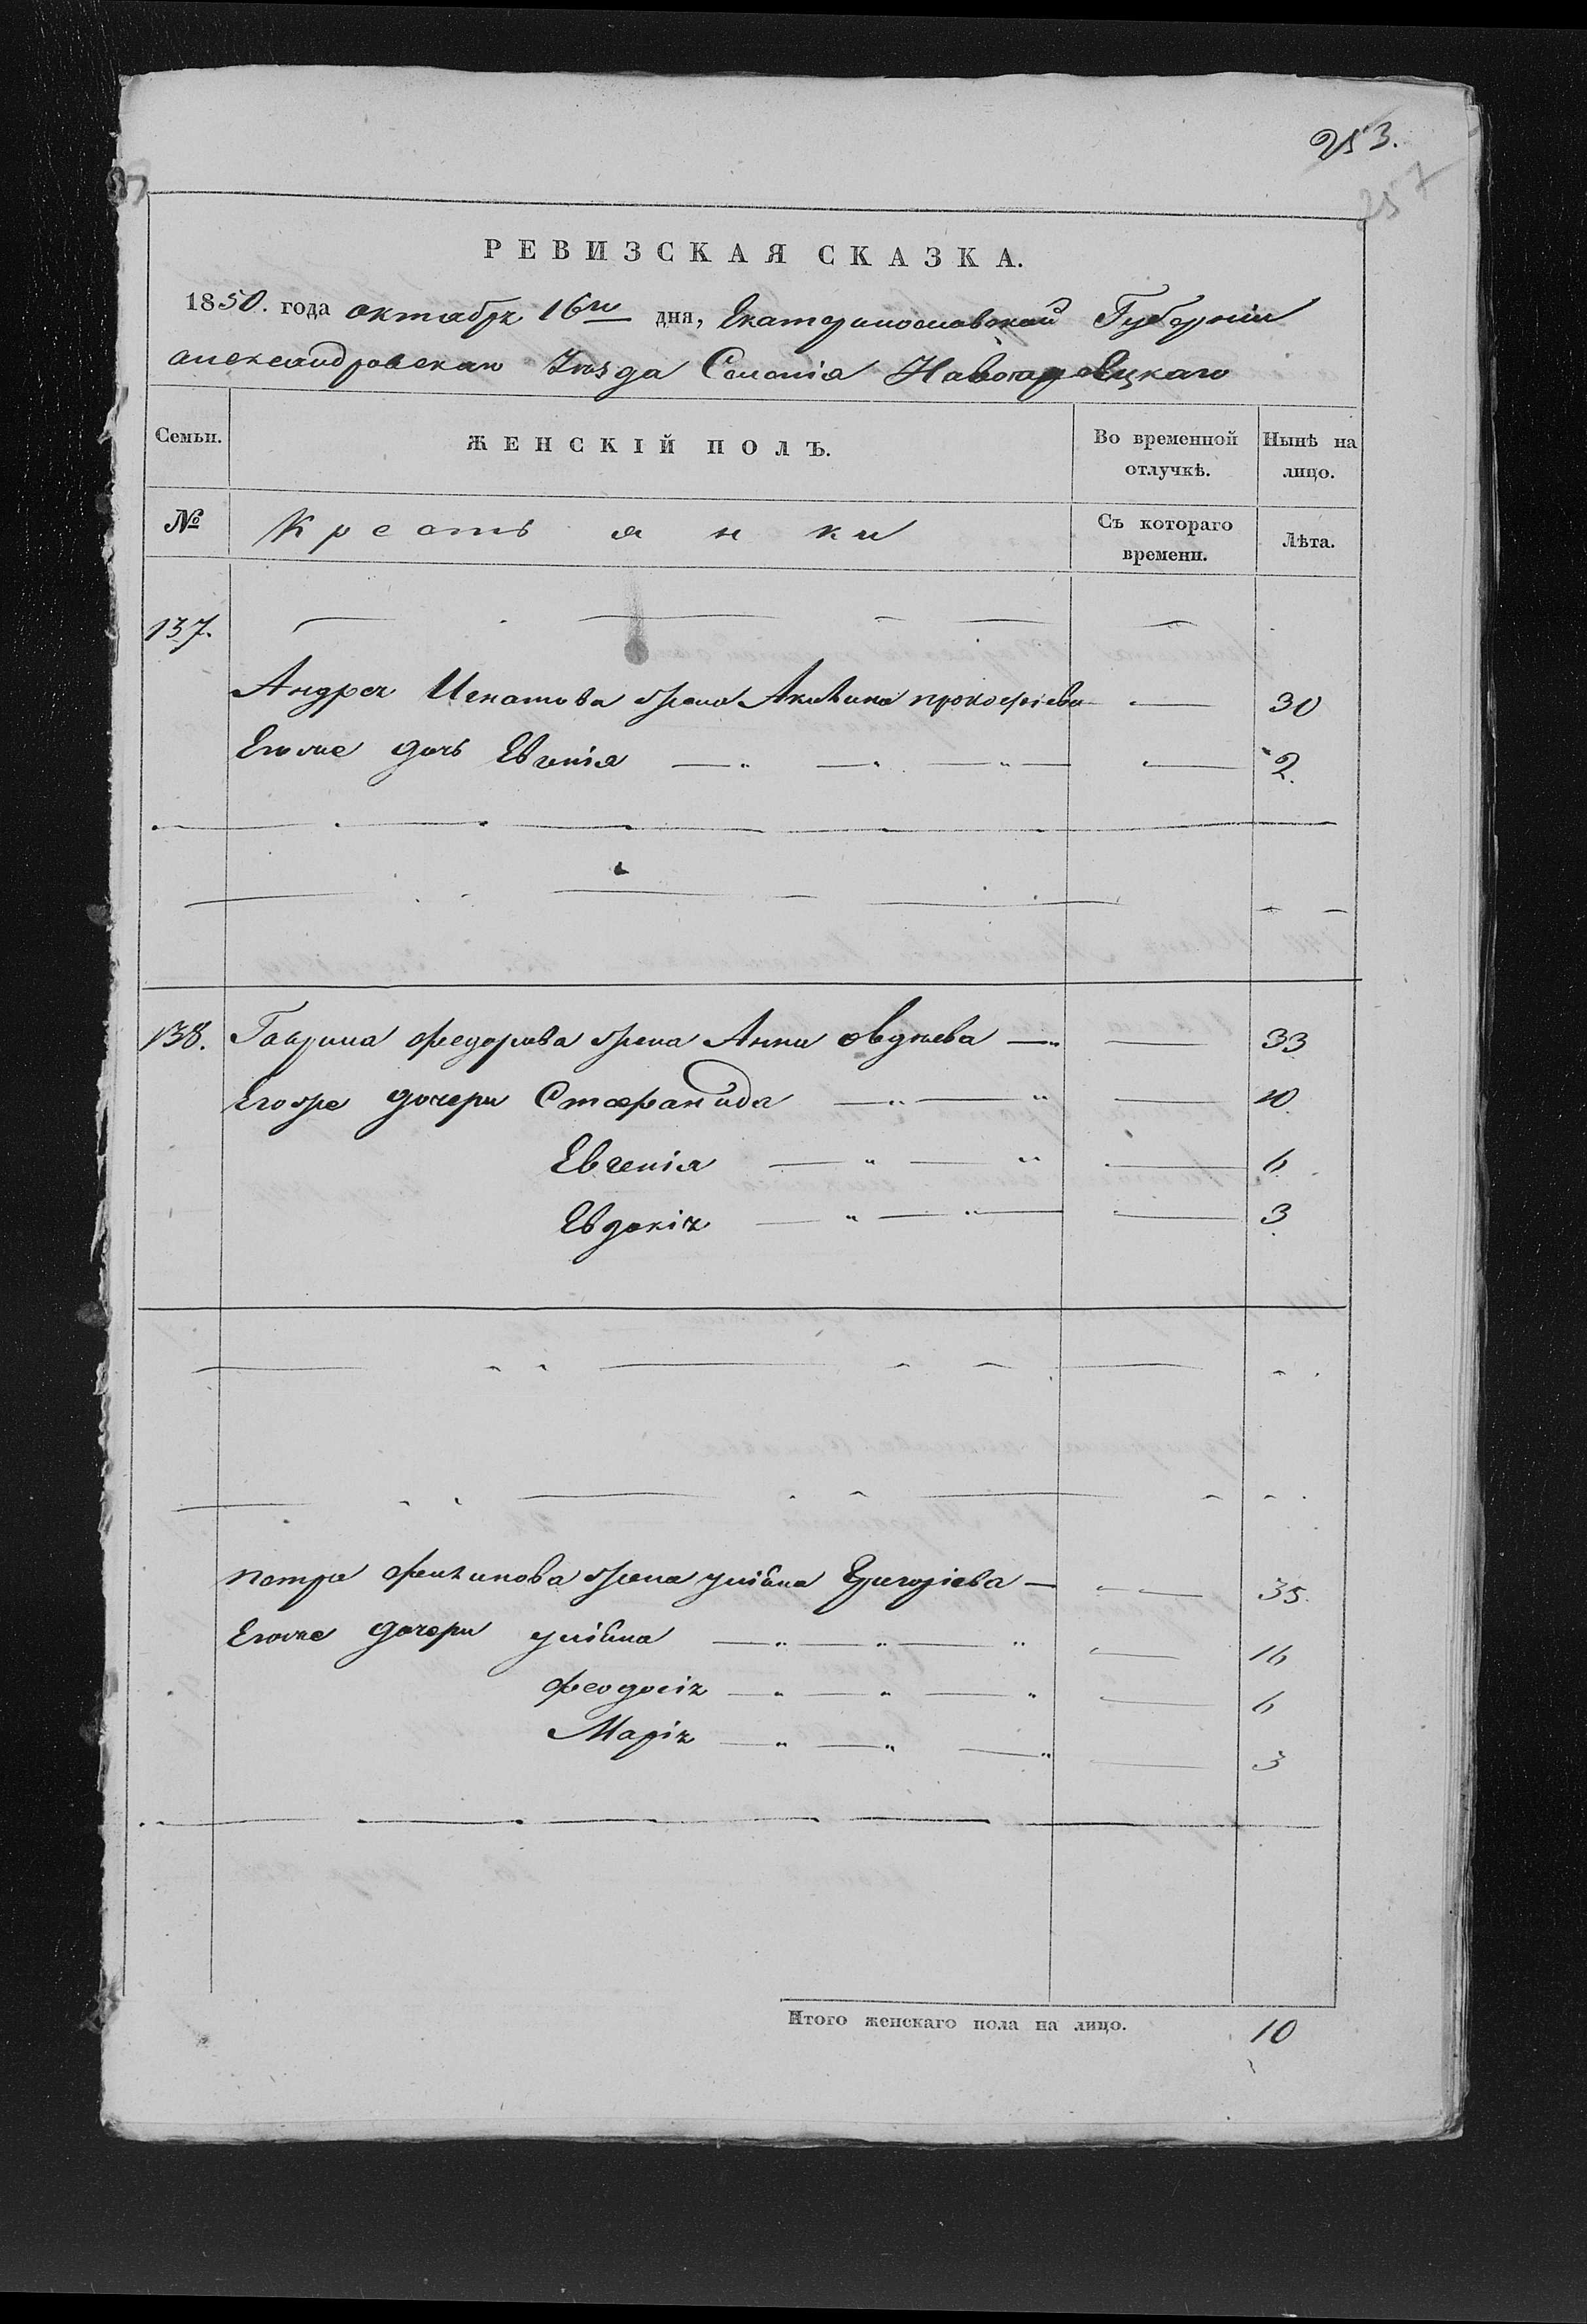 253.
257
РЕВИЗСКАЯ СКАЗКА.
1850. года октября 16го дня, Екатеринославской Губерніи
александровскаго Уѣзда Селенія
Семьи. ЖЕНСКІЙ ПОЛЪ. Во временной отлучкѣ. Нынѣ на лицо.
№ Крестьянки Съ котораго времени. Лѣта.
137.
Андрея Игнатова жена Акилина прокофіева 30
Егоже дочь Евгенія 2.
138. Гаврила федорова жена Анна овдѣева 33
Егоже дочери Стефанида 10.
Евгенія 6
Евдокія 3
петра филипова жена уліяна Григоріева 35.
Егоже дочери уліяна 16
феодосія 6
Марія 3
Итого женскаго пола на лицо. 10